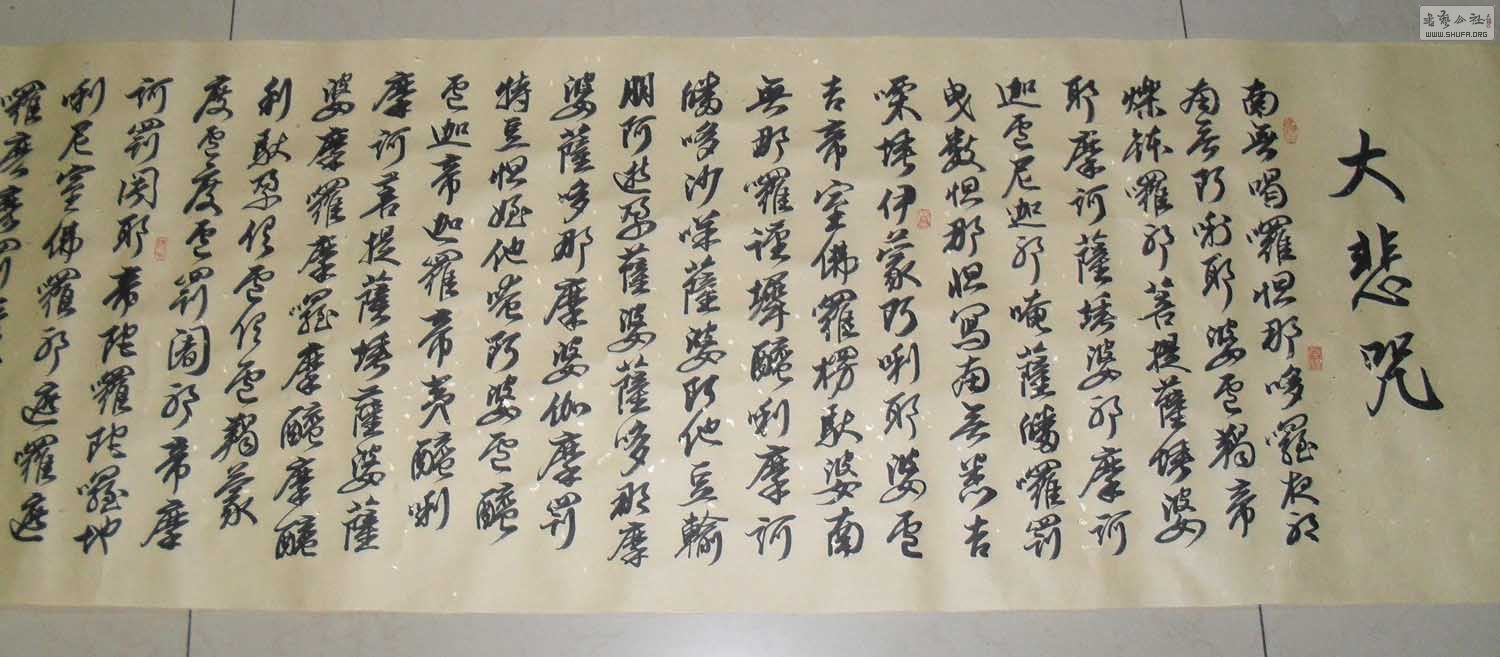 大悲咒
南無喝囉怛那哆囉夜耶
南无阿唎耶婆盧羯帝
爍鉢囉耶菩提薩埵婆
耶摩訶薩埵婆耶摩訶
迦盧尼迦耶唵薩皤囉罰
曳數怛那怛寫南无悉吉
栗埵伊蒙阿唎耶婆盧
吉帝室佛羅楞馱婆南
無那囉謹墀醯唎摩訶
皤哆沙咩薩婆阿他豆輸
朋阿逝孕薩婆薩哆那摩
婆薩哆那摩婆伽摩罰
特豆怛姪他唵阿婆盧醯
盧迦帝迦羅帝夷醯唎
摩訶菩提薩埵薩婆薩
婆摩囉摩囉摩醯摩醯
利馱孕俱盧俱盧羯蒙
度盧度盧罰闍耶帝摩
訶罰闍耶帝陀囉陀囉地
唎尼室佛囉耶遮囉遮
囉麼麼罰
書藝公社
WWW.SHUFA.ORG